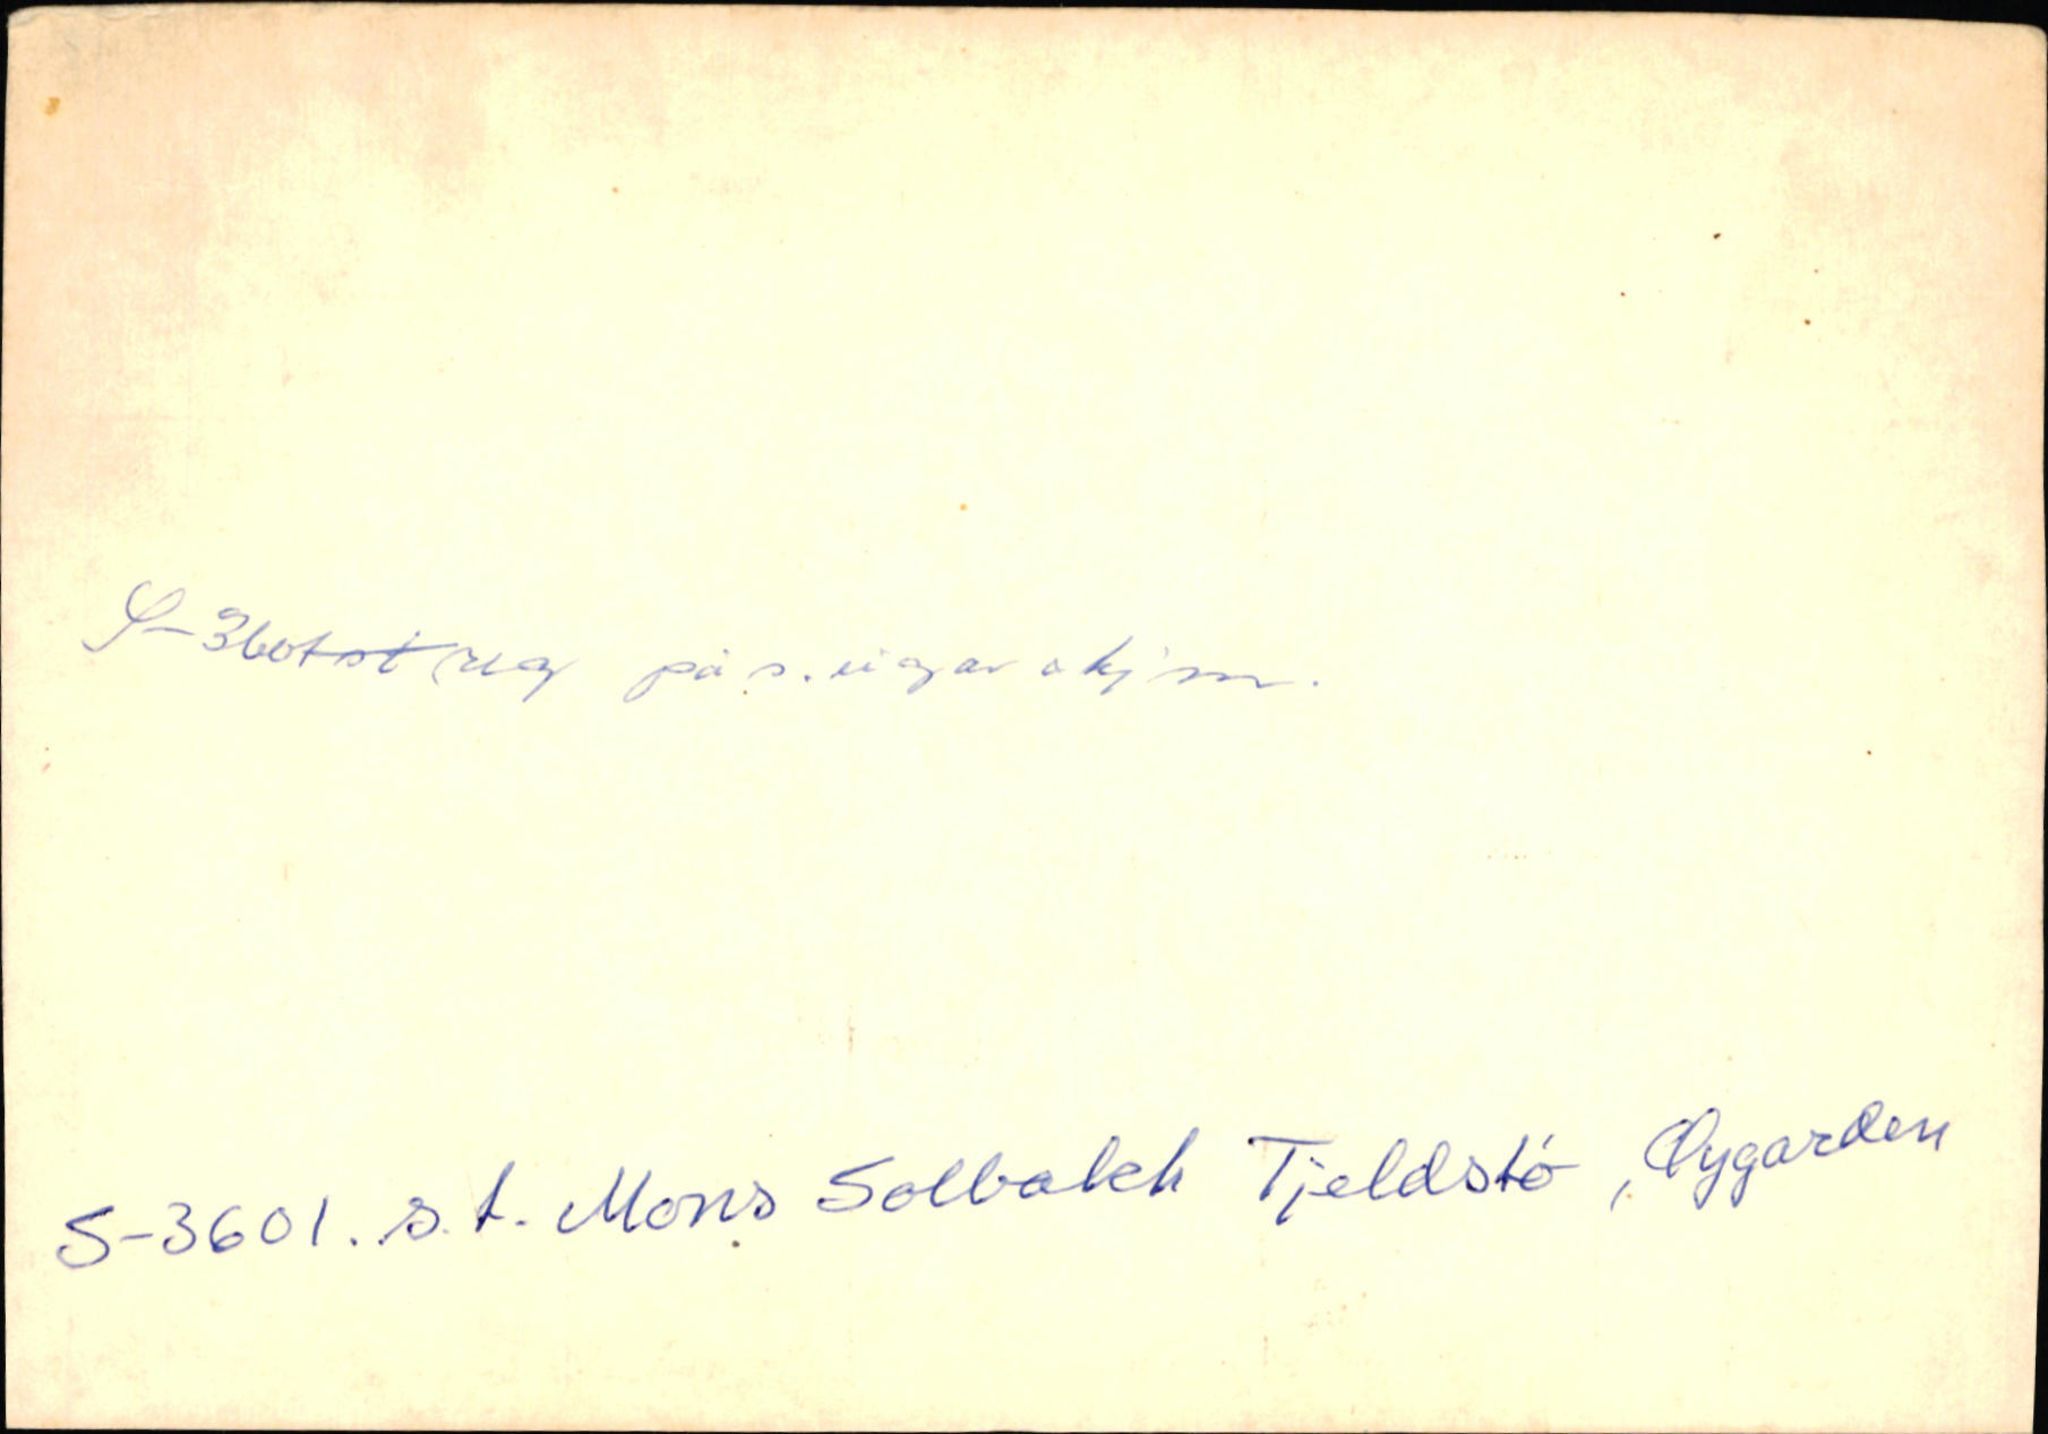 S-3601 st reg på s. eigar okjm.
S-3601. s.t. Mons Solbakk Tjeldstö, Øygarden